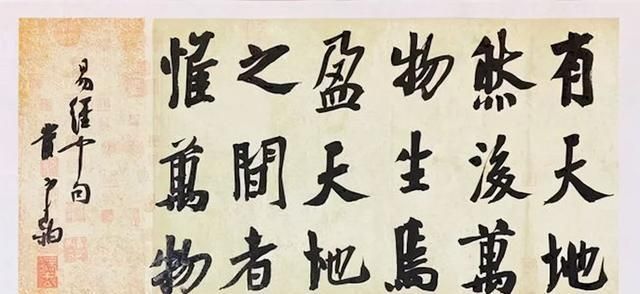 有天地
然後萬
物生焉
盈天地
之間者
惟萬物
易經中句
黄